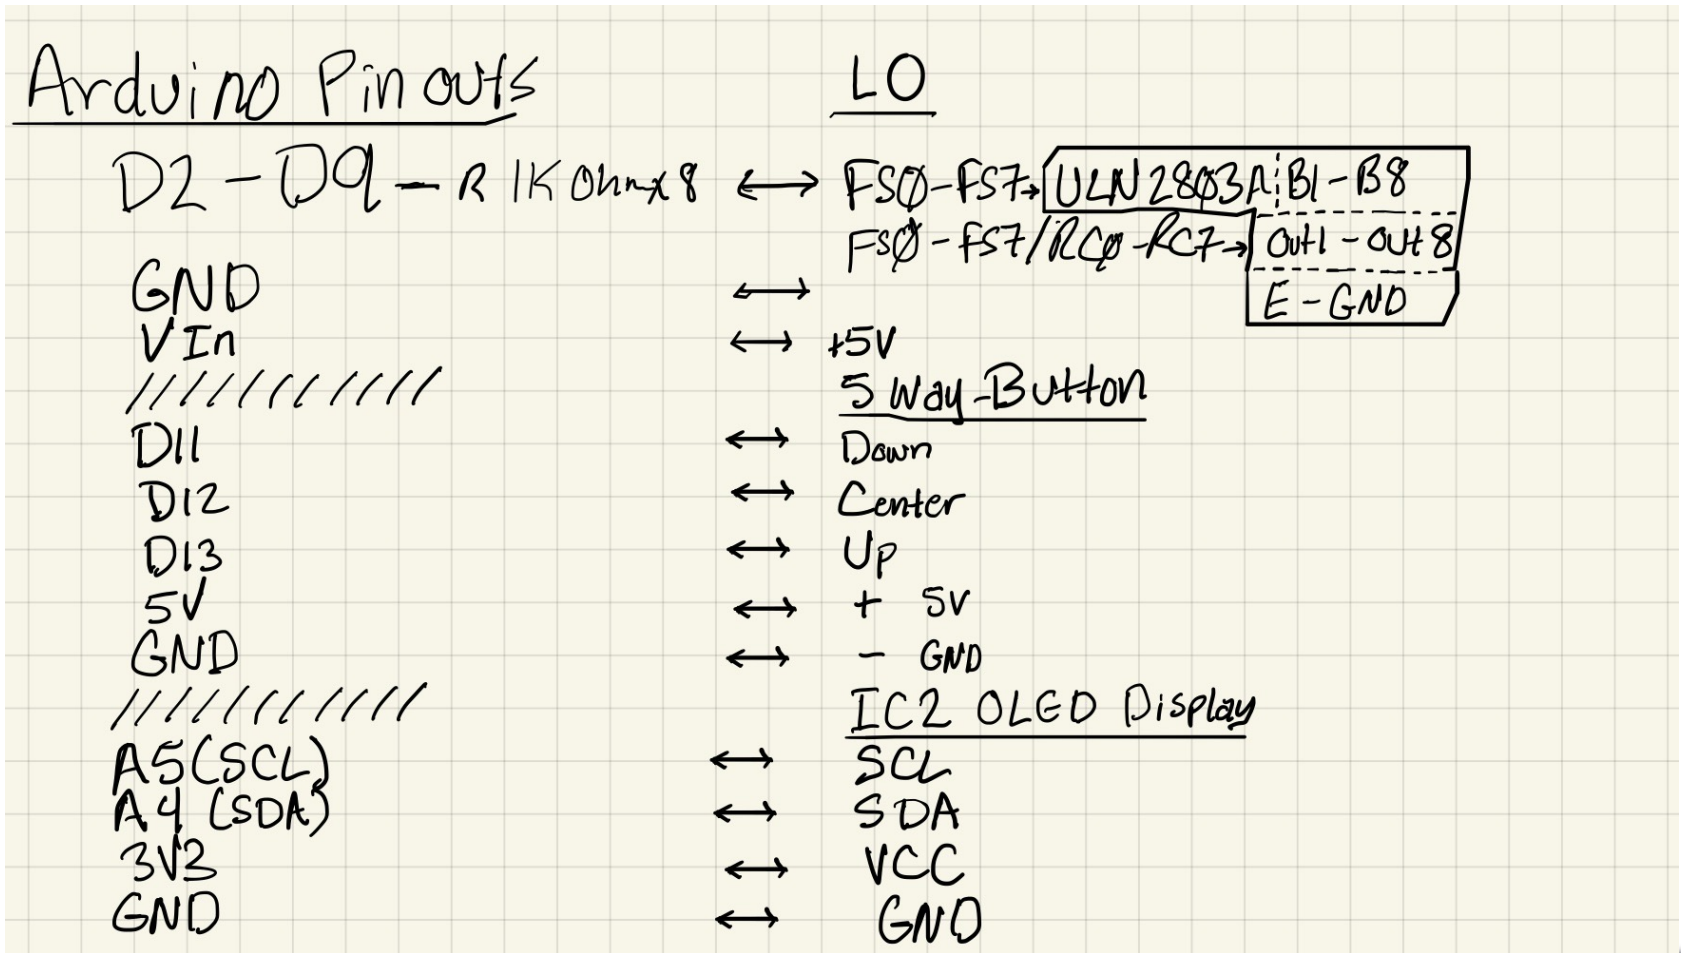 Arduino Pinouts LO
D2-D9-R 1K Ohmx8 ↔ FSØ-FS7→ ULN2803A B1-B8
FSØ-FS7/RCØ-RC7→ Out1-Out8
GND ↔ E-GND
VIn ↔ +5V
/////////// 5 Way-Button
D11 ↔ Down
D12 ↔ Center
D13 ↔ Up
5V ↔ + 5V
GND ↔ - GND
/////////// IC2 OLED Display
A5(SCL) ↔ SCL
A4 (SDA) ↔ SDA
3V3 ↔ VCC
GND ↔ GND